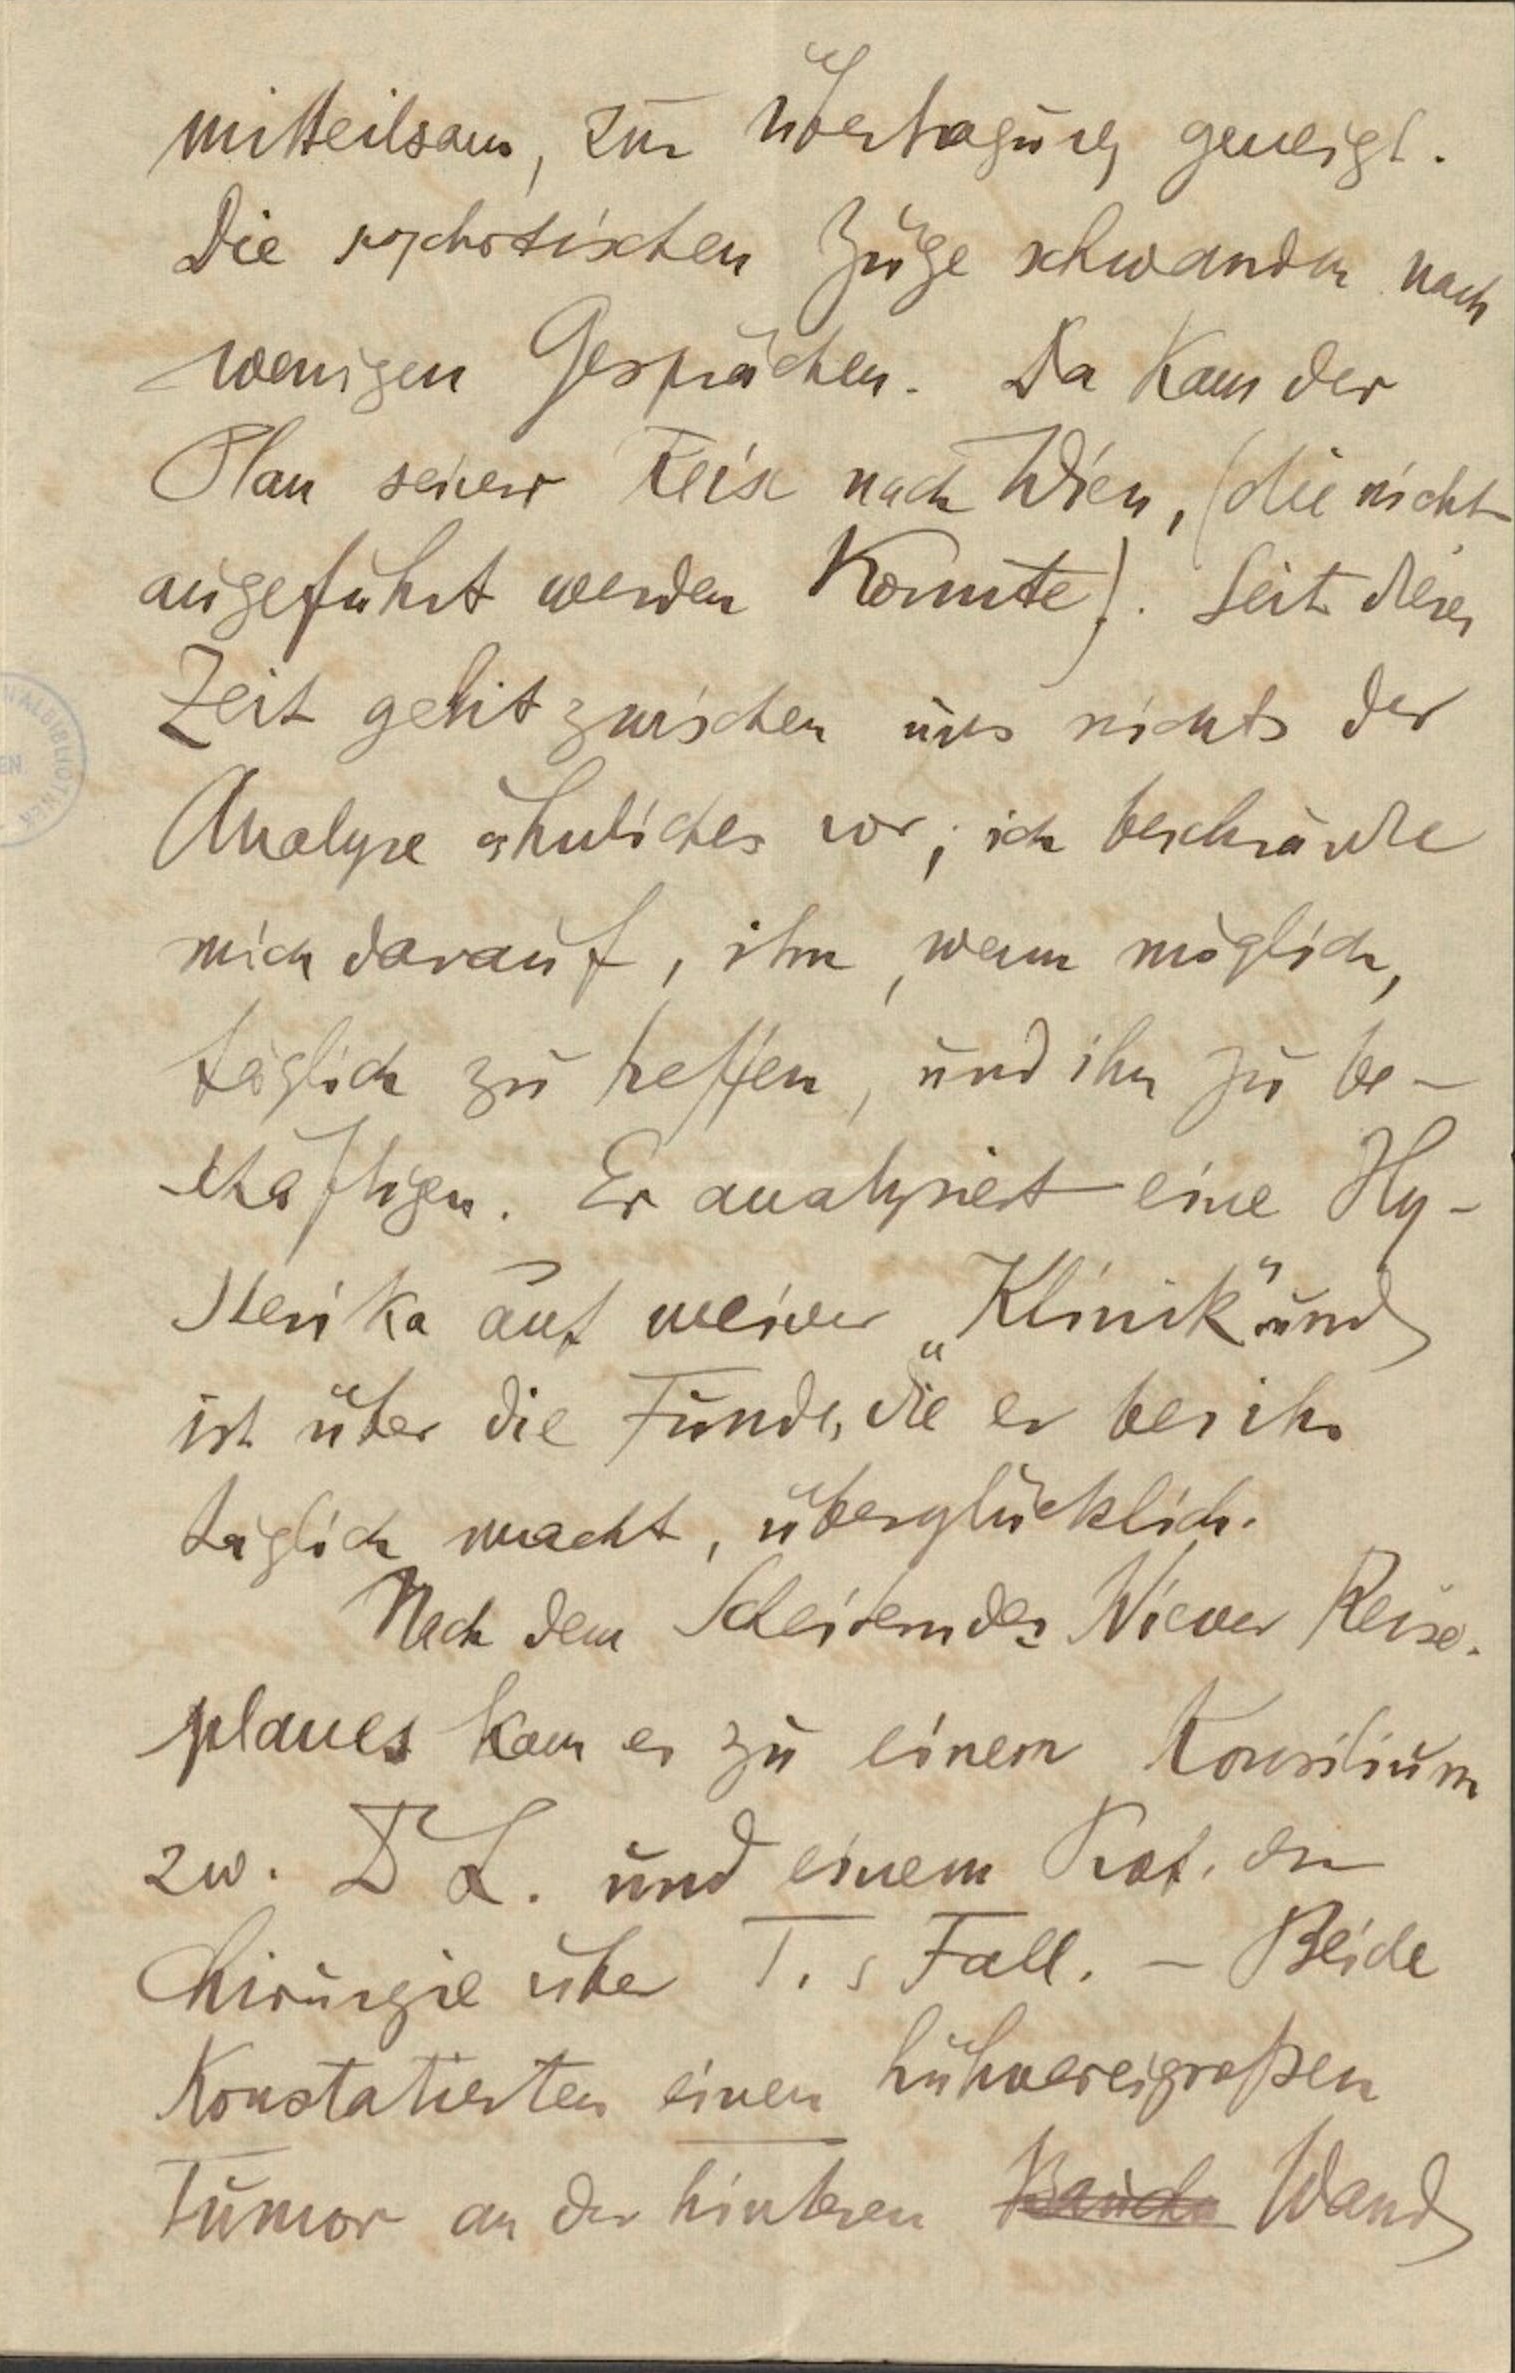 mitteilsam, zur Übertragung geneigt.
Die psychotischen Züge schwanden nach
wenigen Gesprächen. Da kam der
Plan seiner Reise nach Wien, (die nicht
ausgeführt werden konnte). Seit dieser
Zeit geht zwischen uns nichts der
Analyse ähnliches vor; ich beschränke
mich darauf, ihn, wenn möglich,
täglich zu treffen, und ihn zu be-
schäftigen. Er analysiert eine Hy-
sterika auf meiner „Klinik" und
ist über die Funde, die er bei ihr
täglich macht, überglücklich.
Nach dem Scheitern des Wiener Reise-
planes kam es zu einem Konsilium
zw. L. und einem Prof. der
Chirurgie über T.s Fall. — Beide
Konstatierten einen hühnereigroßen
Tumor an der hinteren Bauch Wand